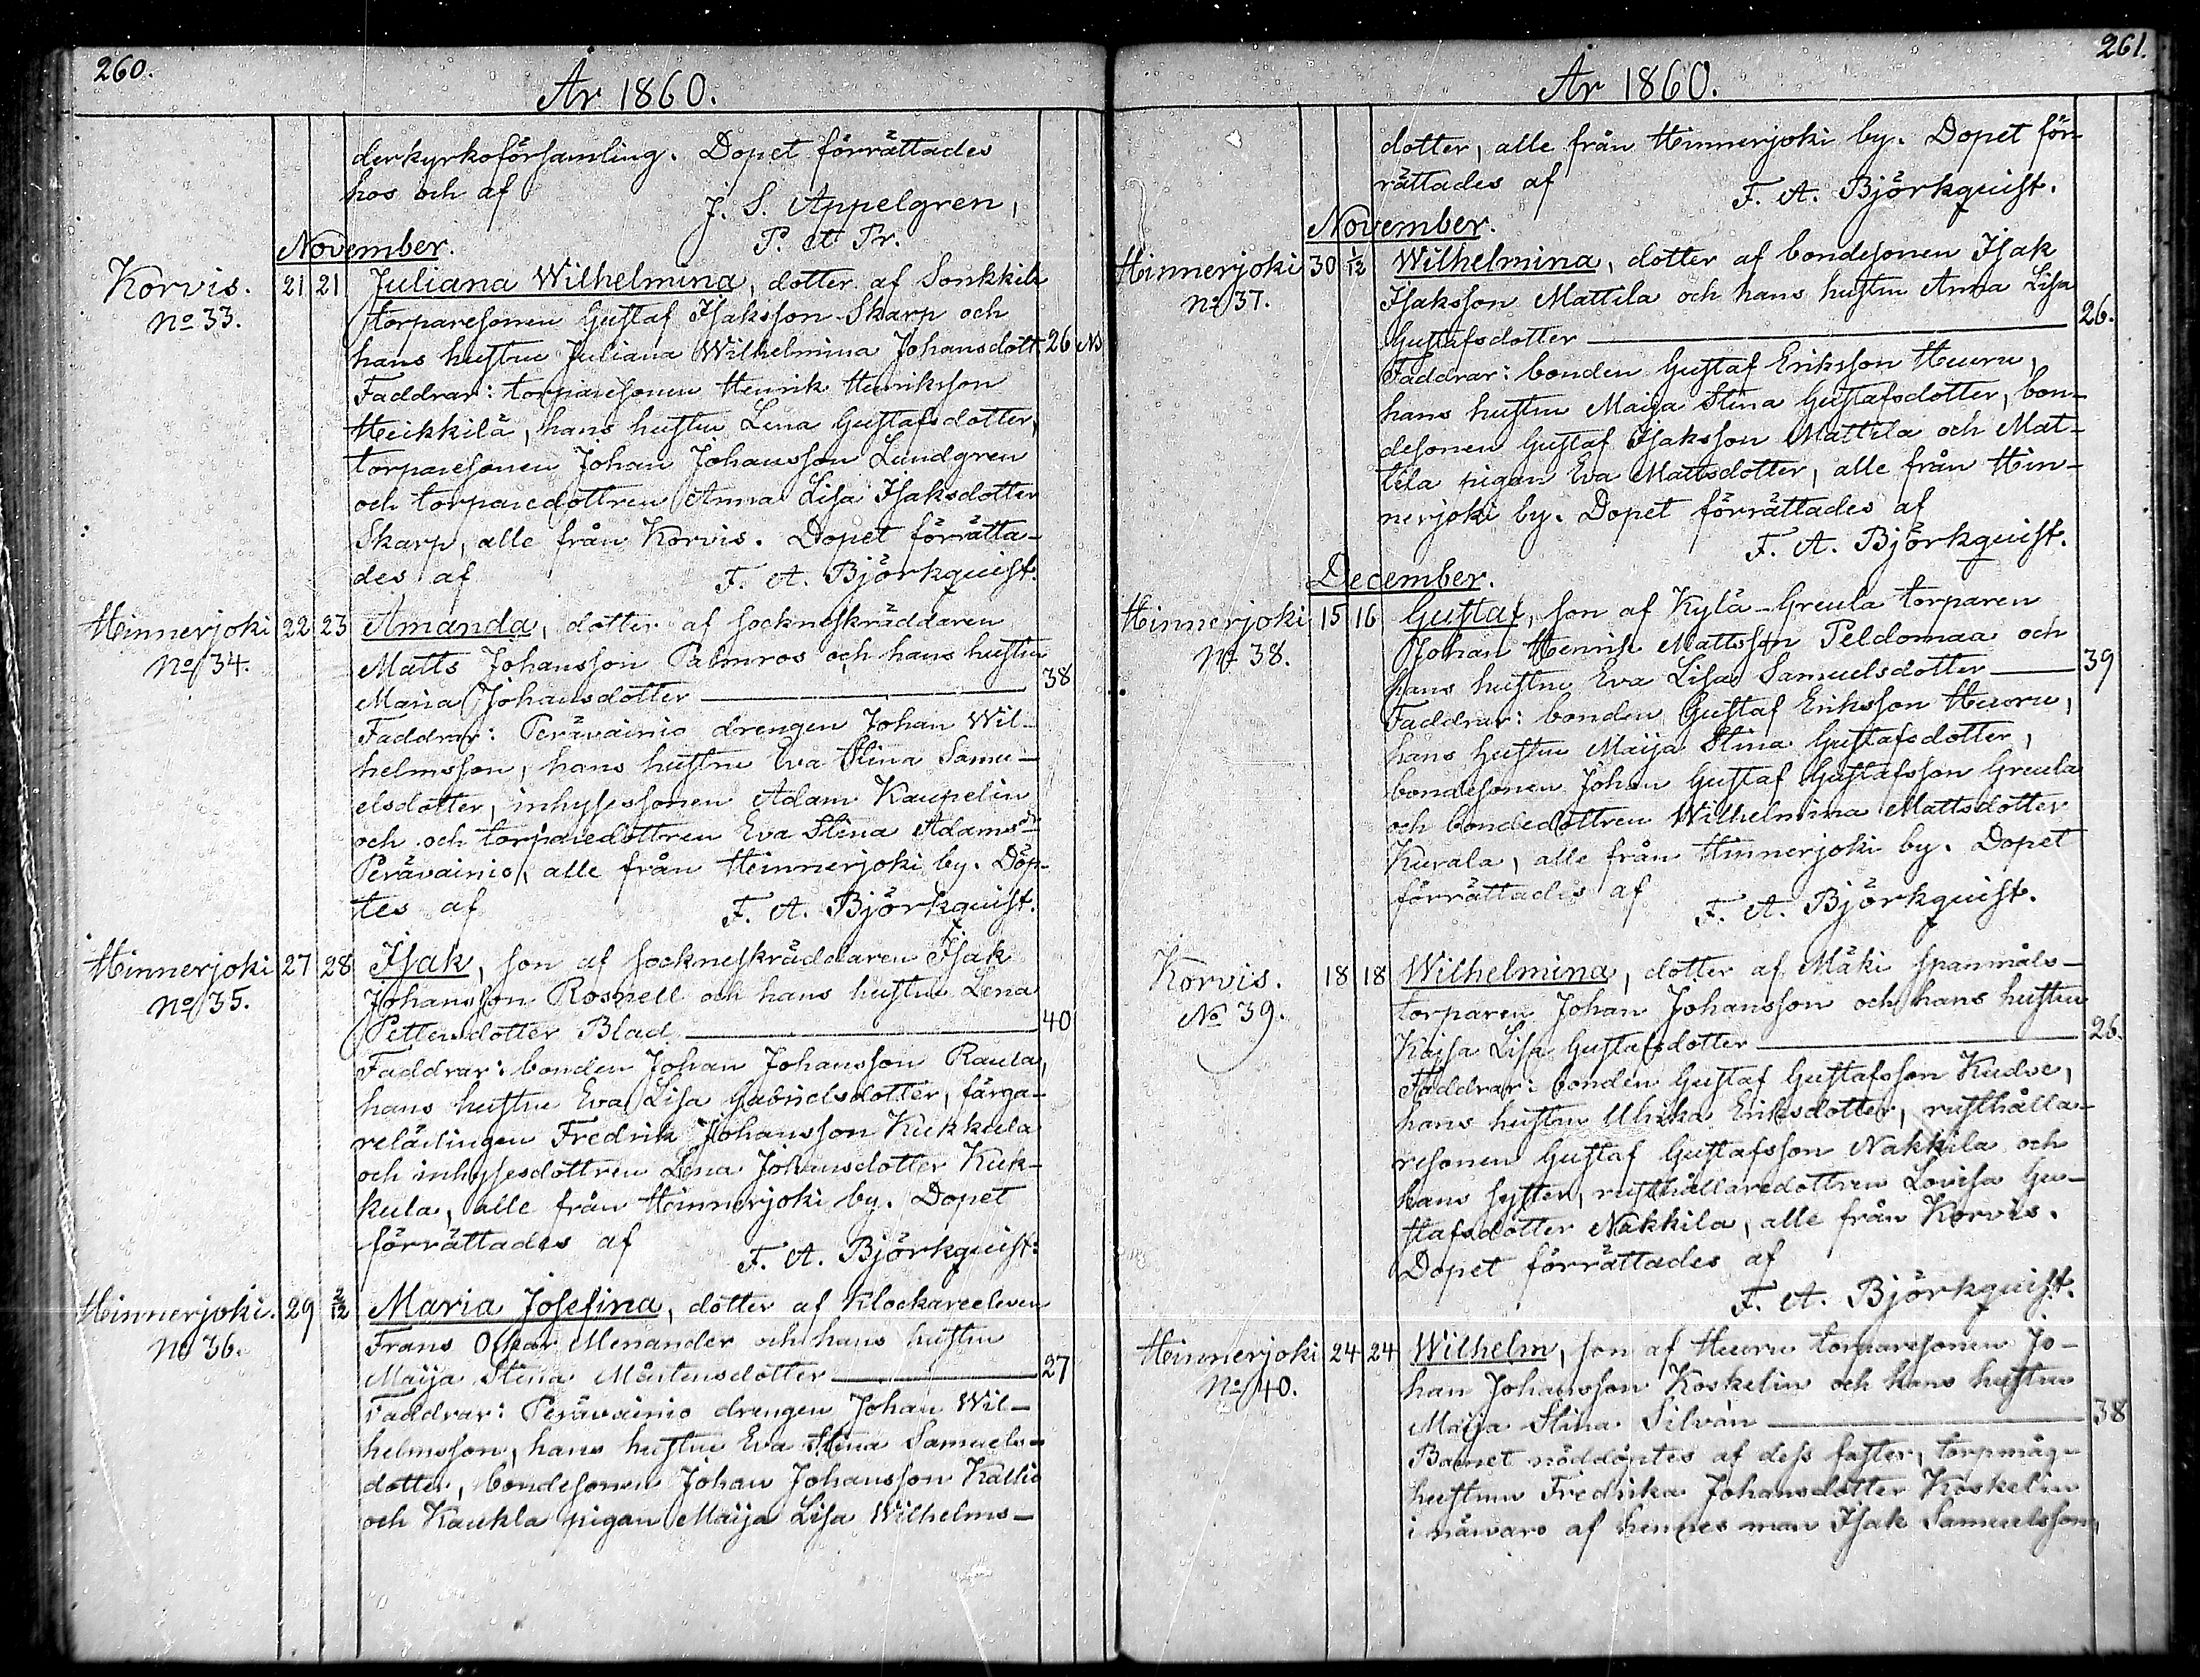 260.
År 1860.
derkyrkoförsamling. Dopet förrättades
hos och af
J. S. Appelgren,
P. et Pr.
November.
Korvis. 21 21 Juliana Wilhelmina, dotter af Sonkkila
No 33. torparesonen Gustaf Isaksson Skarp och
hans hustru Juliana Wilhelmina Johansdott. 26
Faddrar: torparesonen Henrik Henriksson
Heikkilä, hans hustru Lena Gustafsdotter,
torparesonen Johan Johansson Lundgren
och torparedottren Anna Lisa Isaksdotter
Skarp, alle från Korvis. Dopet förrätta-
des af F. A. Björkquist.
Hinnerjoki 22 23 Amanda, dotter af sockneskräddaren
No 34. Matts Johansson Palmros och hans hustru
Maria Johansdotter 38
Faddrar: Perävainio drengen Johan Wil-
helmsson, hans hustru Eva Stina Samu-
elsdotter, inhysessonen Adam Kaupelin
och och torparedottren Eva Stina Adamsdr
Perävainio, alle från Hinnerjoki by. Döp-
tes af F. A. Björkquist.
Hinnerjoki 27 28 Isak, son af sockneskräddaren Isak
No 35. Johansson Rosnell och hans hustru Lena
Pettersdotter Blad 40
Faddrar: bonden Johan Johansson Raula,
hans hustru Eva Lisa Gabrielsdotter, färga-
relärlingen Fredrik Johansson Kukkula
och inhysesdottren Lena Johansdotter Kuk-
kula, alle från Hinnerjoki by. Dopet
förrättades af F. A. Björkquist.
Hinnerjoki. 29 2/12 Maria Josefina, dotter af Klockareeleven
No 36. Frans Oskar Menander och hans hustru
Maija Stina Mårtensdotter 27
Faddrar: Perävainio drengen Johan Wil-
helmsson, hans hustru Eva Stina Samuels-
dotter, bondesonen Johan Johansson Kallio
och Kaukla pigan Maija Lisa Wilhelms-
261.
År 1860.
dotter, alle från Hinnerjoki by. Dopet för-
rättades af F. A. Björkquist.
November.
Hinnerjoki 30 1/12 Wilhelmina, dotter af bondesonen Isak
No 37. Isaksson Mattila och hans hustru Anna Lisa
Gustafsdotter 26.
Faddrar: bonden Gustaf Eriksson Huuru,
hans hustru Maija Stina Gustafsdotter, bon-
desonen Gustaf Isaksson Mattila och Mat-
tila pigan Eva Mattsdotter, alle från Hin-
nerjoki by. Dopet förrättades af
F. A. Björkquist.
December.
Hinnerjoki 15 16 Gustaf, son af Kylä-Greula torparen
No 38. Johan Henrik Mattsson Peldomaa och
hans hustru Eva Lisa Samuelsdotter 39
Faddrar: bonden Gustaf Eriksson Huuru,
hans hustru Maija Stina Gustafsdotter,
bondesonen Johan Gustaf Gustafsson Greula
och bondedottren Wilhelmina Mattsdotter
Kurala, alle från Hinnerjoki by. Dopet
förrättades af F. A. Björkquist.
Korvis. 18 18 Wilhelmina, dotter af Mäki spanmåls-
No 39. torparen Johan Johansson och hans hustru
Kajsa Lisa Gustafsdotter 26.
Faddrar: bonden Gustaf Gustafsson
hans hustru Ulrika Eriksdotter, rusthålla-
resonen Gustaf Gustafsson Nakkila och
hans syster, rusthållaredottren Lovisa Gu-
stafsdotter Nakkila, alle från Korvis.
Dopet förrättades af
F. A. Björkquist.
Hinnerjoki 24 24 Wilhelm, son af Huuru torparesonen Jo-
No 40. han Johansson Koskelin och hans hustru
Maija Stina Silvàn 38
Barnet nöddöptes af dess faster, torpmåg-
hustrun Fredrika Johansdotter Koskelin
i närvaro af hennes man Isak Samuelsson,